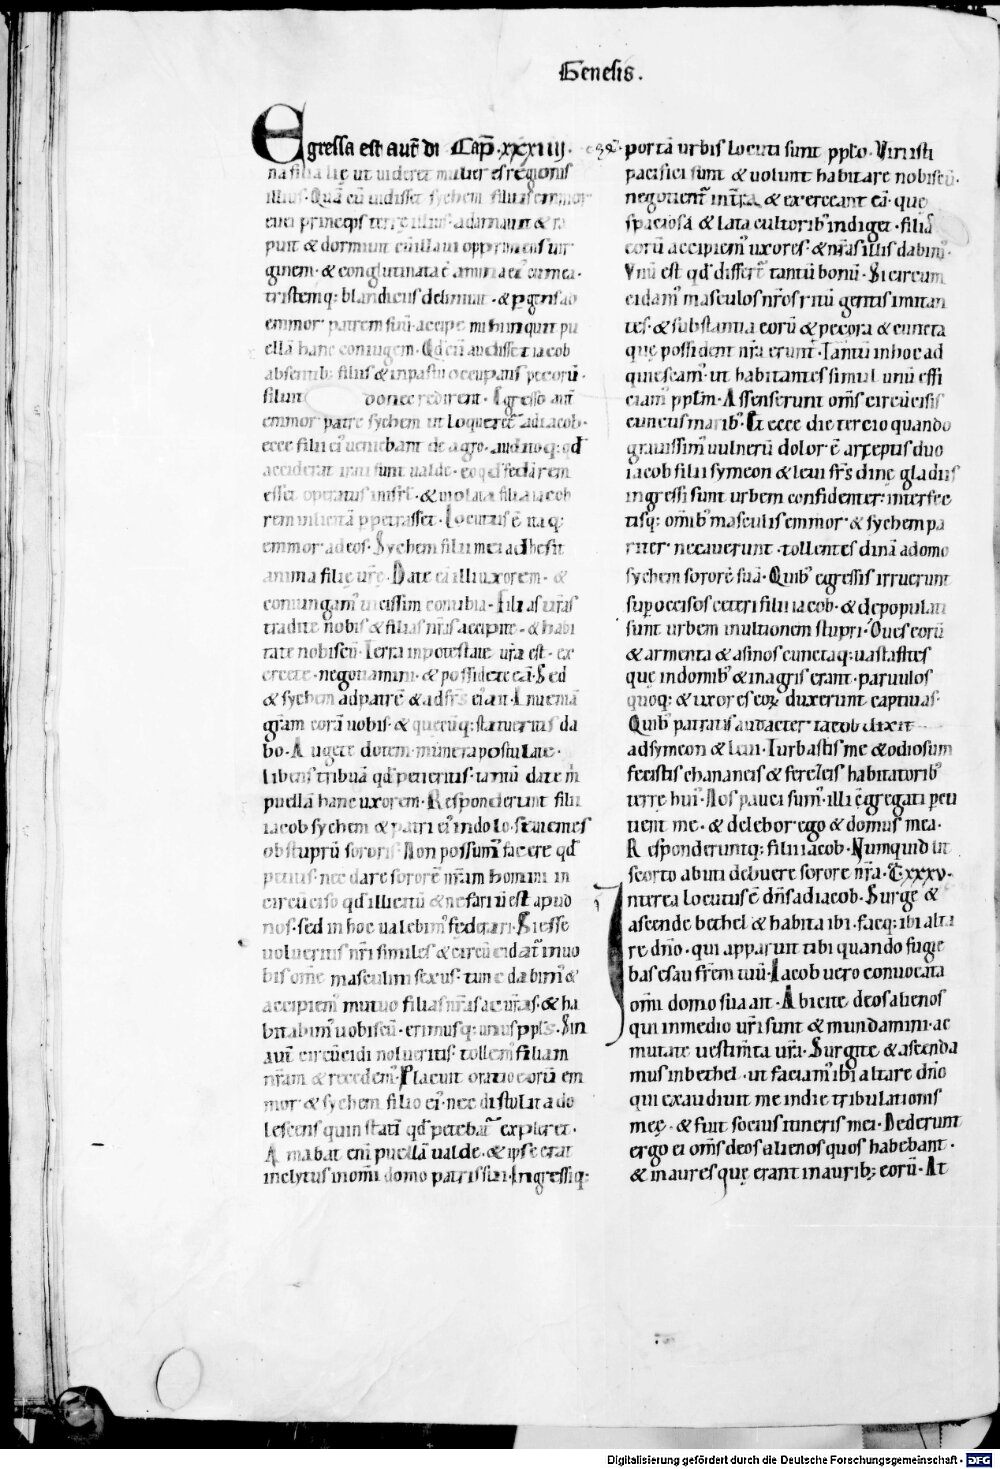 Genesis.
Egressa est aut̄ di Cap̄. xxxiiii.
na filia lię ut uideret mulieres regionis
illius. Quā cū uidisset sychem filius emmor
euei princeps terrę illius. adamauit & ra
puit & dormiuit cū illa ui opprimens uir
ginem. & conglutinata ē anima eiꝰ cum ea.
tristemq; blandiciis deliniuit. & pgens ad
emmor patrem suū. accipe mihi inquit pu
ellā hanc coniugem. Qd̄ cū audisset iacob
absentibꝰ filiis & in pastu occupatis pecorū.
siluit donec redirent. Egresso aut̄
emmor patre sychem ut loqueret̄ ad iacob.
ecce filii eiꝰ ueniebant de agro. auditoq; qd̄
acciderat irati sunt ualde. eo qd̄ fedā rem
esset operatus in isrl̄. & uiolata filia iacob
rem inlicitā ppetrasset. Locutus ē itaq;
emmor ad eos. Sychem filii mei adhesit
anima filię ur̄e. Date eā illi uxorem. &
coniungamꝰ uicissim conubia. Filias ur̄as
tradite nobis & filias nr̄as accipite. & habi
tate nobiscū. Terra in potestate ur̄a est. ex
ercete. negotiamini. & possidete eā. Sed
& sychem ad patrē & ad fr̄s eiꝰ ait. Inueniā
gr̄am corā uobis. & quęcūq; statueritis da
bo. Augete dotem. munera postulate.
libens tribuā qd̄ petieritis. tantū date m̄
puellā hanc uxorem. Responderunt filii
iacob sychem & patri eiꝰ in dolo. seuientes
ob stuprū sororis. Non possumꝰ facere qd̄
petitis. nec dare sororē nr̄am homini in
circūciso qd̄ illicitū & nefariū est apud
nos. sed in hoc ualebimꝰ federari. Si esse
uolueritis nr̄i similes & circūcidat̄ in uo
bis om̄e masculini sexus. tunc dabimꝰ &
accipiemꝰ mutuo filias nr̄as ac ur̄as. & ha
bitabimꝰ uobiscū. erimusq; unus ppl̄s. Sin
aut̄ circūcidi nolueritis. tollemꝰ filiam
nr̄am & recedemꝰ. Placuit oratio eorū em
mor & sychem filio eiꝰ. nec distulit ado
lescens quin statī qd̄ petebat̄ expleret.
Amabat enī puellā ualde. & ipse erat
inclytus in om̄i domo patris sui. Ingressiq;
portā urbis locuti sunt ppl̄o. Viri isti
pacifici sunt & uolunt habitare nobiscū.
negotient̄ in tr̄a & exerceant eā. que
spaciosa & lata cultoribꝰ indiget. filias
eorū accipiemꝰ uxores. & nr̄as illis dabimꝰ.
Vnū est qd̄ differt̄ tantū bonū. Si circum
cidamꝰ masculos nr̄os ritū gentis imitan
tes. & substantia eorū & pecora & cuncta
que possident nr̄a erunt. Tantū in hoc ad
quiescamꝰ. ut habitantes simul unū effi
ciamꝰ ppl̄m. Assenserunt om̄s circūcisis
cunctis maribꝰ. Et ecce die tercio quando
grauissimꝰ uulnerū dolor ē arreptis duo
iacob filii symeon & leui fr̄s dinę gladiis
ingressi sunt urbem confidenter. interfec
tisq; om̄ibꝰ masculis emmor & sychem pa
riter necauerunt. tollentes dinā a domo
sychem sororē suā. Quibꝰ egressis irruerunt
sup occisos ceteri filii iacob. & depopulati
sunt urbem in ultionem stupri. Oues eorū
& armenta & asinos cunctaq; uastantes
que in domibꝰ & in agris erant. paruulos
quoq; & uxores eoꝝ duxerunt captiuas.
Quibꝰ patratis audacter iacob dixit
ad symeon & leui. Turbastis me & odiosum
fecistis chananeis & ferezeis habitatoribꝰ
terrę huiꝰ. Nos pauci sumꝰ. illi c̄gregati pcu
tient me. & delebor ego & domus mea.
Responderuntq; filii iacob. Numquid ut
scorto abuti debuere sorore nr̄a. C. xxxv.
Interea locutus ē dn̄s ad iacob. Surge &
ascende bethel & habita ibi. facq; ibi alta
re dn̄o. qui apparuit tibi quando fugie
bas esau fr̄em tuū. Iacob uero conuocata
om̄i domo sua ait. Abicite deos alienos
qui in medio ur̄i sunt & mundamini. ac
mutate uestim̄ta ur̄a. Surgite & ascenda
mus in bethel. ut faciamꝰ ibi altare dn̄o
qui exaudiuit me in die tribulationis
meę. & fuit socius itineris mei. Dederunt
ergo ei om̄s deos alienos quos habebant.
& inaures quę erant in auribꝰ eorū. At
Digitalisierung gefördert durch die Deutsche Forschungsgemeinschaft - DFG